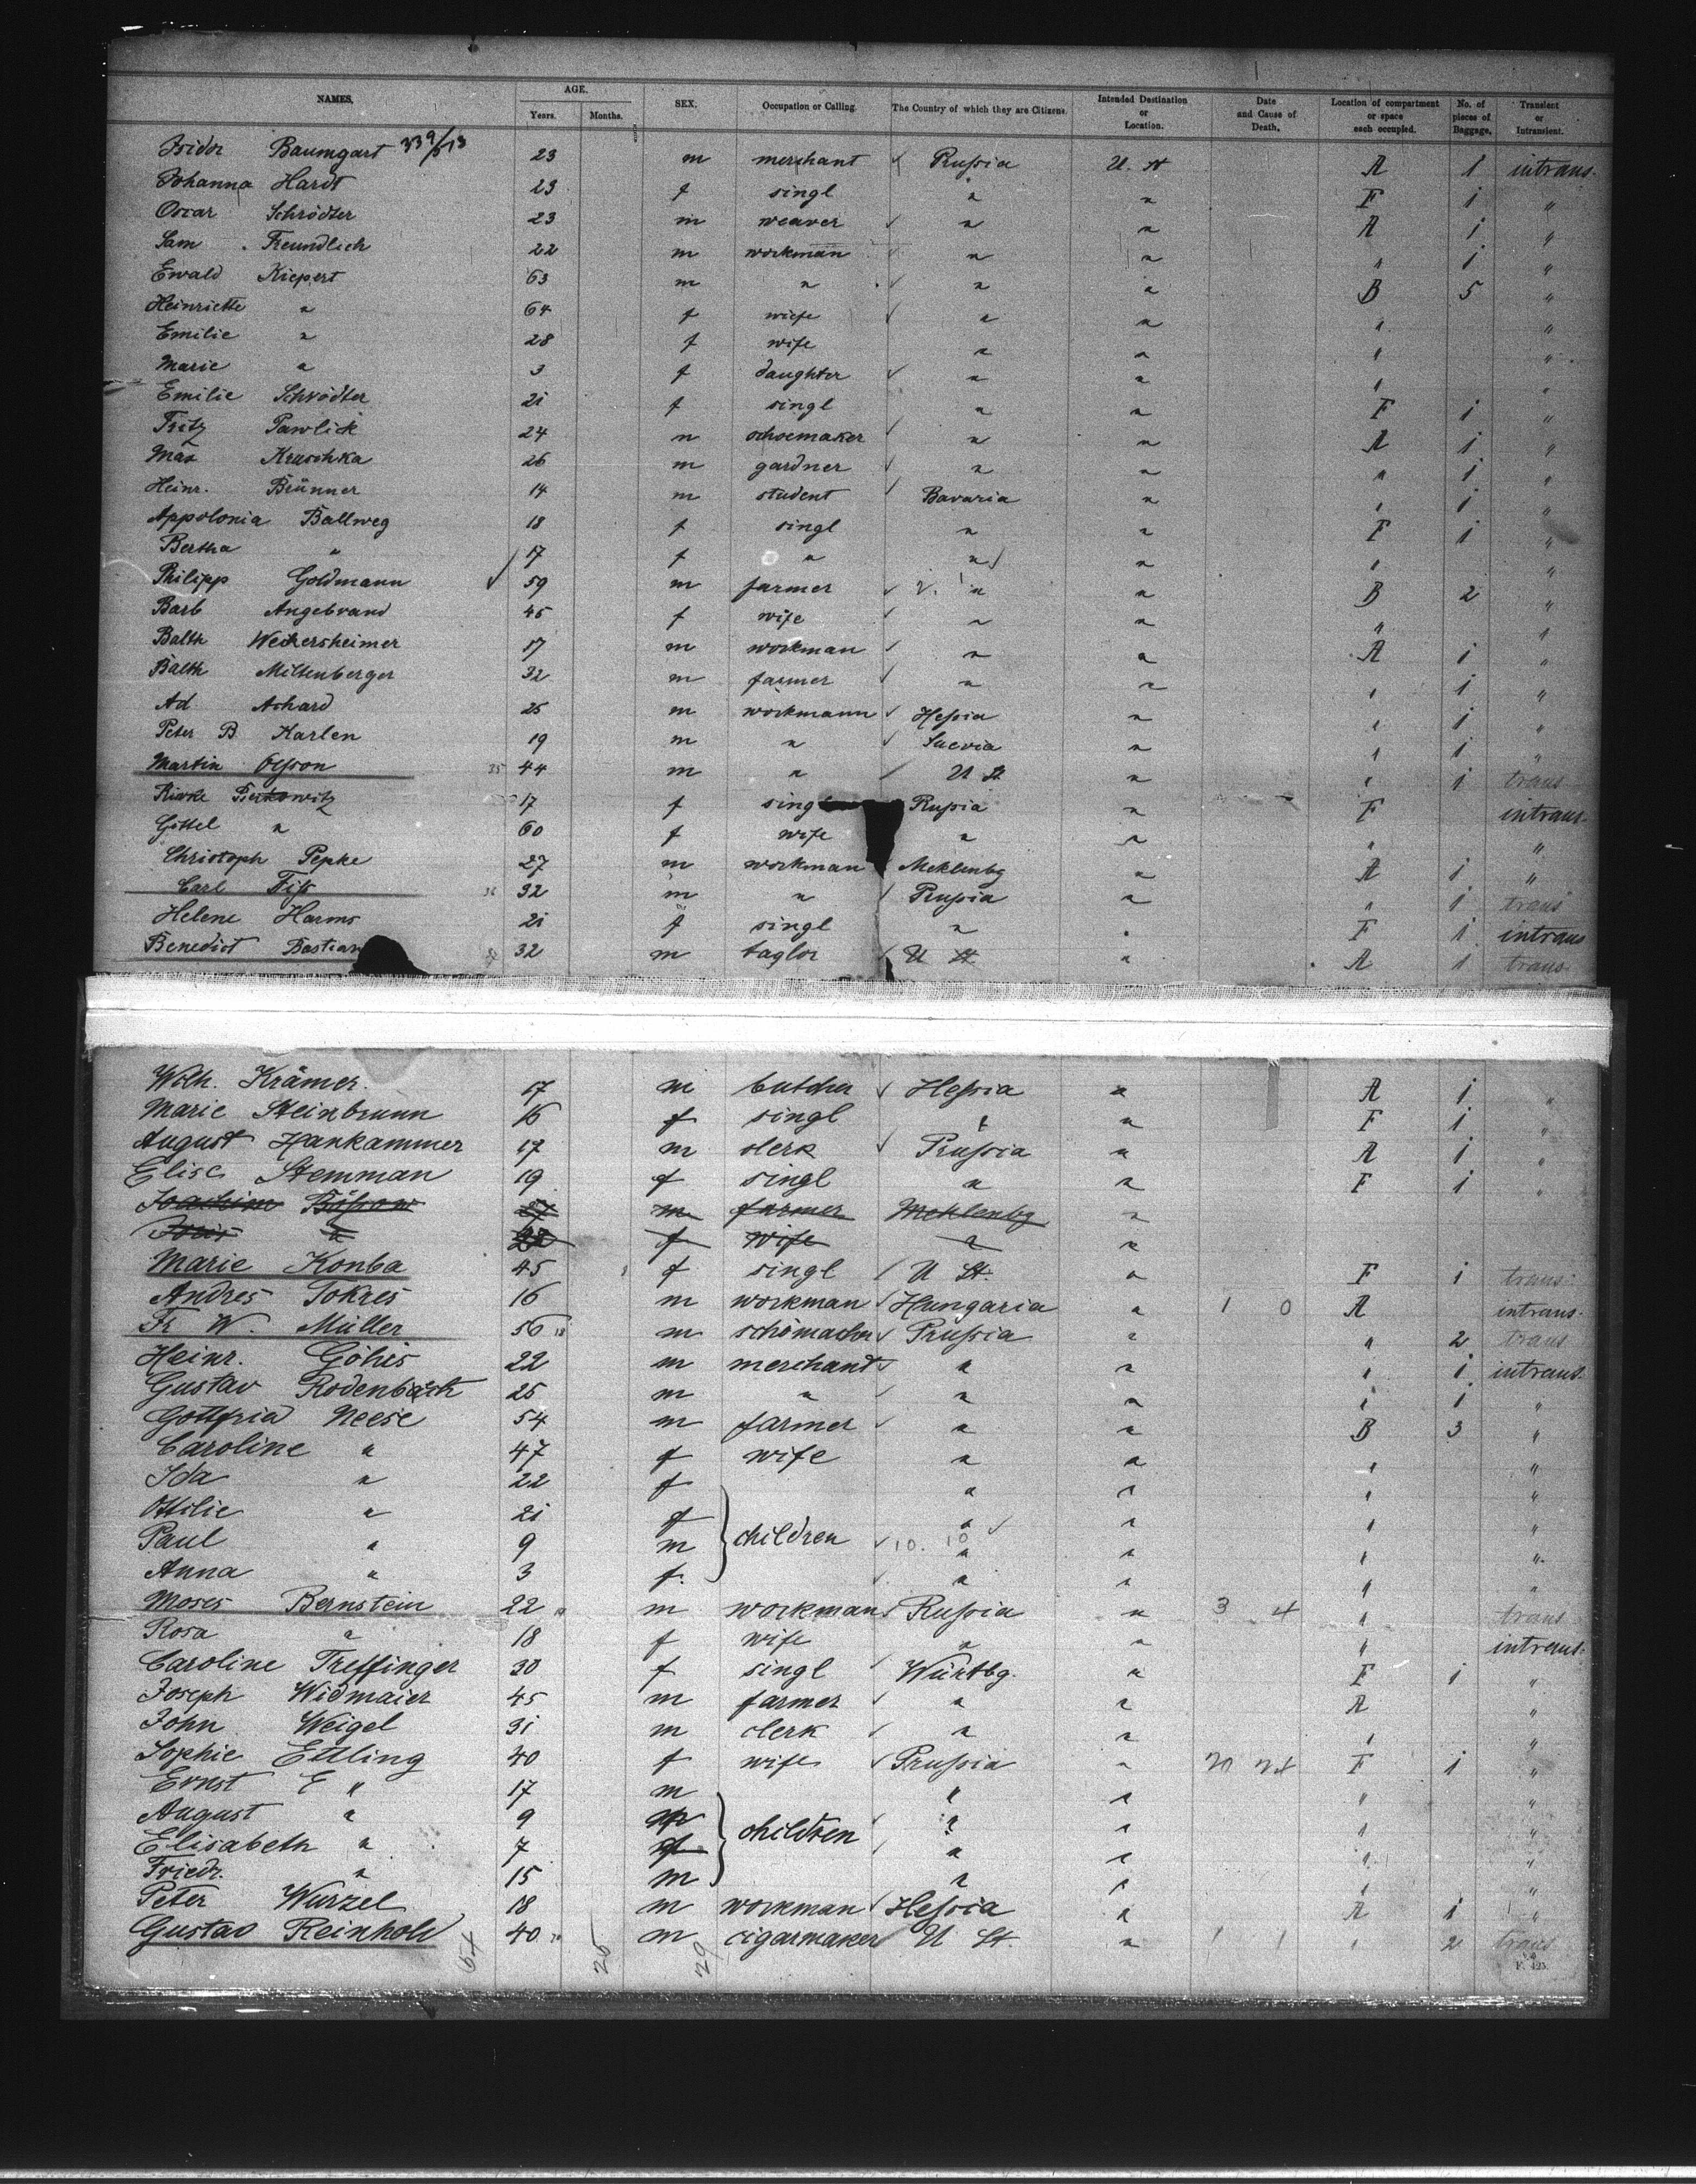 NAMES. AGE. Years. Months. SEX. Occupation or Calling. The Country of which they are Citizens. Intended Destination or Location. Date and Cause of Death. Location of compartment or space each occupied. No. of pieces of Baggage. Transient or Intransient.
Isidor Baumgart 23 m merchant Russia U. St A 1 intrans.
Johanna Hardt 23 f singl " " F 1 "
Oscar Schrödter 23 m weaver " " A 1 "
Sam Freundlich 22 m workman " " " 1 "
Ewald Kiepert 63 m " " " B 5 "
Heinriette " 64 f wiefe " " " "
Emilie " 28 f wife " " " "
Marie " 3 f daughter " " " "
Emilie Schrödter 21 f singl " " F 1 "
Fritz Pawlick 24 m schoemaker " " A 1 "
Max Kruschka 26 m gardner " " " 1 "
Heinr. Brünner 14 m student Bavaria " " 1 "
Appolonia Ballweg 18 f singl " " F 1 "
Bertha " 17 f " " " " "
Philipp Goldmann 59 m farmer " " B 2 "
Barb Angebrand 45 f wife " " " "
Balth Weikersheimer 17 m workman " " A 1 "
Balth Miltenberger 32 m farmer " " " 1 "
Ad Achard 25 m workmann Hessia " " 1 "
Peter B. Karlen 19 m " Suevia " " 1 "
Martin Olsson 35 44 m " U St " " 1 trans
Rivke 17 f singl " F intrans.
Gittel " 60 f wife " " " "
Christoph Pepke 27 m workman Meklenbg " A 1 "
Carl Fiss 36 32 m " Prussia " " 1 trans
Helene Harms 21 f singl " " F 1 intrans
Benedict Bastian 32 m taylor U St " A 1 trans
Wilh. Krämer 17 m butcher Hessia " A 1 "
Marie Steinbrunn 16 f singl " " F 1 "
August Hankammer 17 m clerk Prussia " A 1 "
Elise Stemman 19 f singl " " F 1 "
Joachim m farmer Meklenbg "
" f wife " "
Marie Konba 45 f singl U St. " F 1 trans.
Andres Tokres 16 m workman Hungaria " 1 0 A intrans.
Fr W. Müller 56 m schömacher Prussia " " 2 trans
Heinr. Göhis 22 m merchant " " " 1 intrans.
Gustav Rodenbäck 25 m " " " " 1 "
Gottfried Neese 54 m farmer " " B 3 "
Caroline " 47 f wife " " " "
Ida " 22 f " " " "
Ottilie " 21 f " " " "
Paul " 9 m children 10. 10 " " " "
Anna " 3 f. " " " "
Moses Bernstein 22 m workman Russia " 3 4 " trans
Rosa " 18 f wife " " " intrans.
Caroline Treffinger 30 f singl Würtbg. " F 1 "
Joseph Widmaier 45 m farmer " " A "
John Weigel 31 m clerk " " " "
Sophie Ettling 40 f wife Prussia " F 1 "
Ernst E " 17 m " " " "
August " 9 m " " " "
Elisabeth " 7 f children " " " "
Friedr. " 15 m " " " "
Peter Wurzel 18 m workman Hessia " A 1 "
Gustav Reinhold 40 m cigarmaker U St. " 1 1 " 2 trans
64 25 29